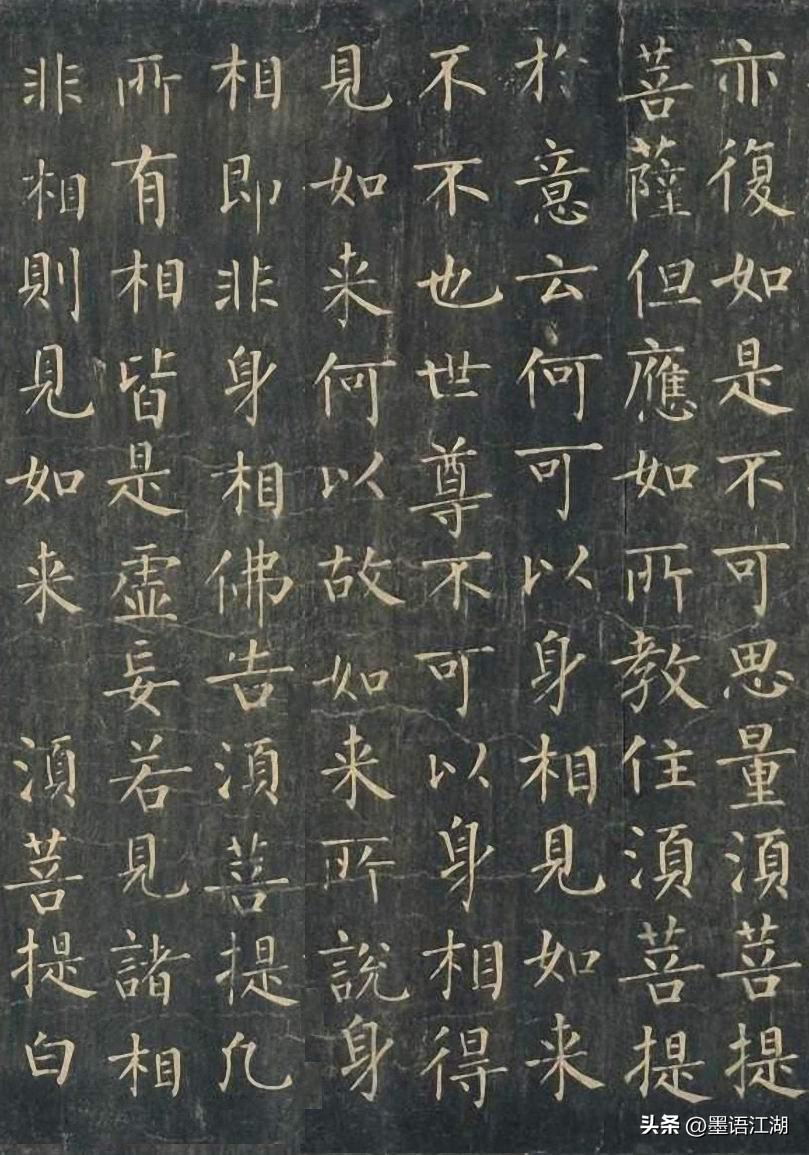 亦復如是不可思量湏菩提
菩薩但應如所教住湏菩提
於意云何可以身相見如来
不不也世尊不可以身相得
見如来何以故如来所說身
相即非身相佛告湏菩提凡
所有相皆是虛妄若見諸相
非相則見如来 湏菩提白
头条 @墨语江湖